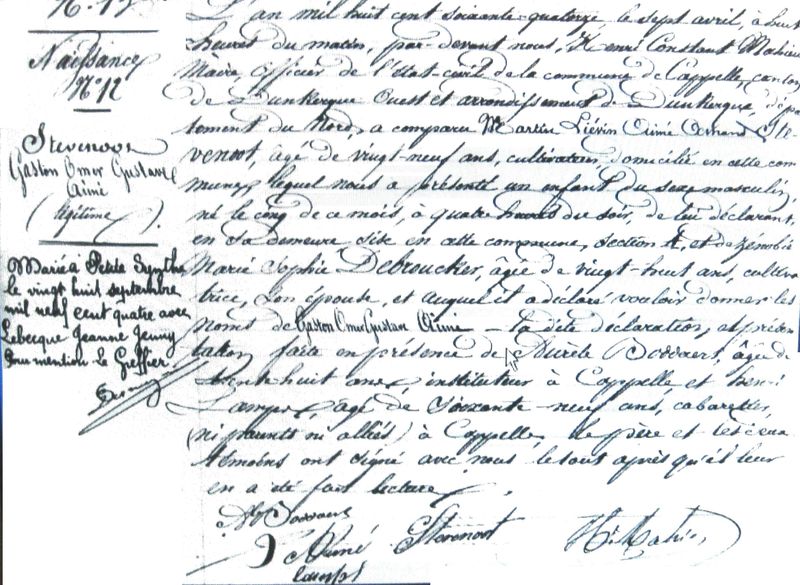 N° 12
Naissance
N° 12
Stevenoot
Gaston Omer Gustave
Aimé
(légitime).
Marié à Petite Synthe
le vingt huit septembre
mil neuf cent quatre avec
Lebecque Jeanne Jenny
Pour mention Le Greffier
L'an mil huit cent soixante-quatorze le sept avril, à huit
heures du matin, par-devant nous, Henri Constant Mahieu
Maire, officier de l'état-civil de la commune de Cappelle, canton
de Dunkerque Ouest et arrondissement de Dunkerque, dépar
tement du Nord, a comparu Martin Liévin Aimé Amand Ste-
venoot, âgé de vingt-neuf ans, cultivateur, domicilié en cette com
mune, lequel nous a présenté un enfant du sexe masculin,
né le cinq de ce mois, à quatre heures du soir, de lui déclarant,
en sa demeure, sise en cette commune, section A, et de Zénobie
Marie Sophie Debroucker, âgée de vingt-huit ans, cultiva
trice, son épouse, et auquel il a déclaré vouloir donner les
noms de Gaston Omer Gustave Aimé — la dite déclaration, et présen
tation faite en présence de Bossaert, âgé de
trente-huit ans, instituteur à Cappelle et Henri
âgé de soixante-neuf ans, cabaretier,
(ni parents ni alliés) à Cappelle, le père et les deux
témoins ont signé avec nous le tout après qu'il leur
en a été fait lecture.
Bossaert
Aimé Stevenoot
H. Mahieu